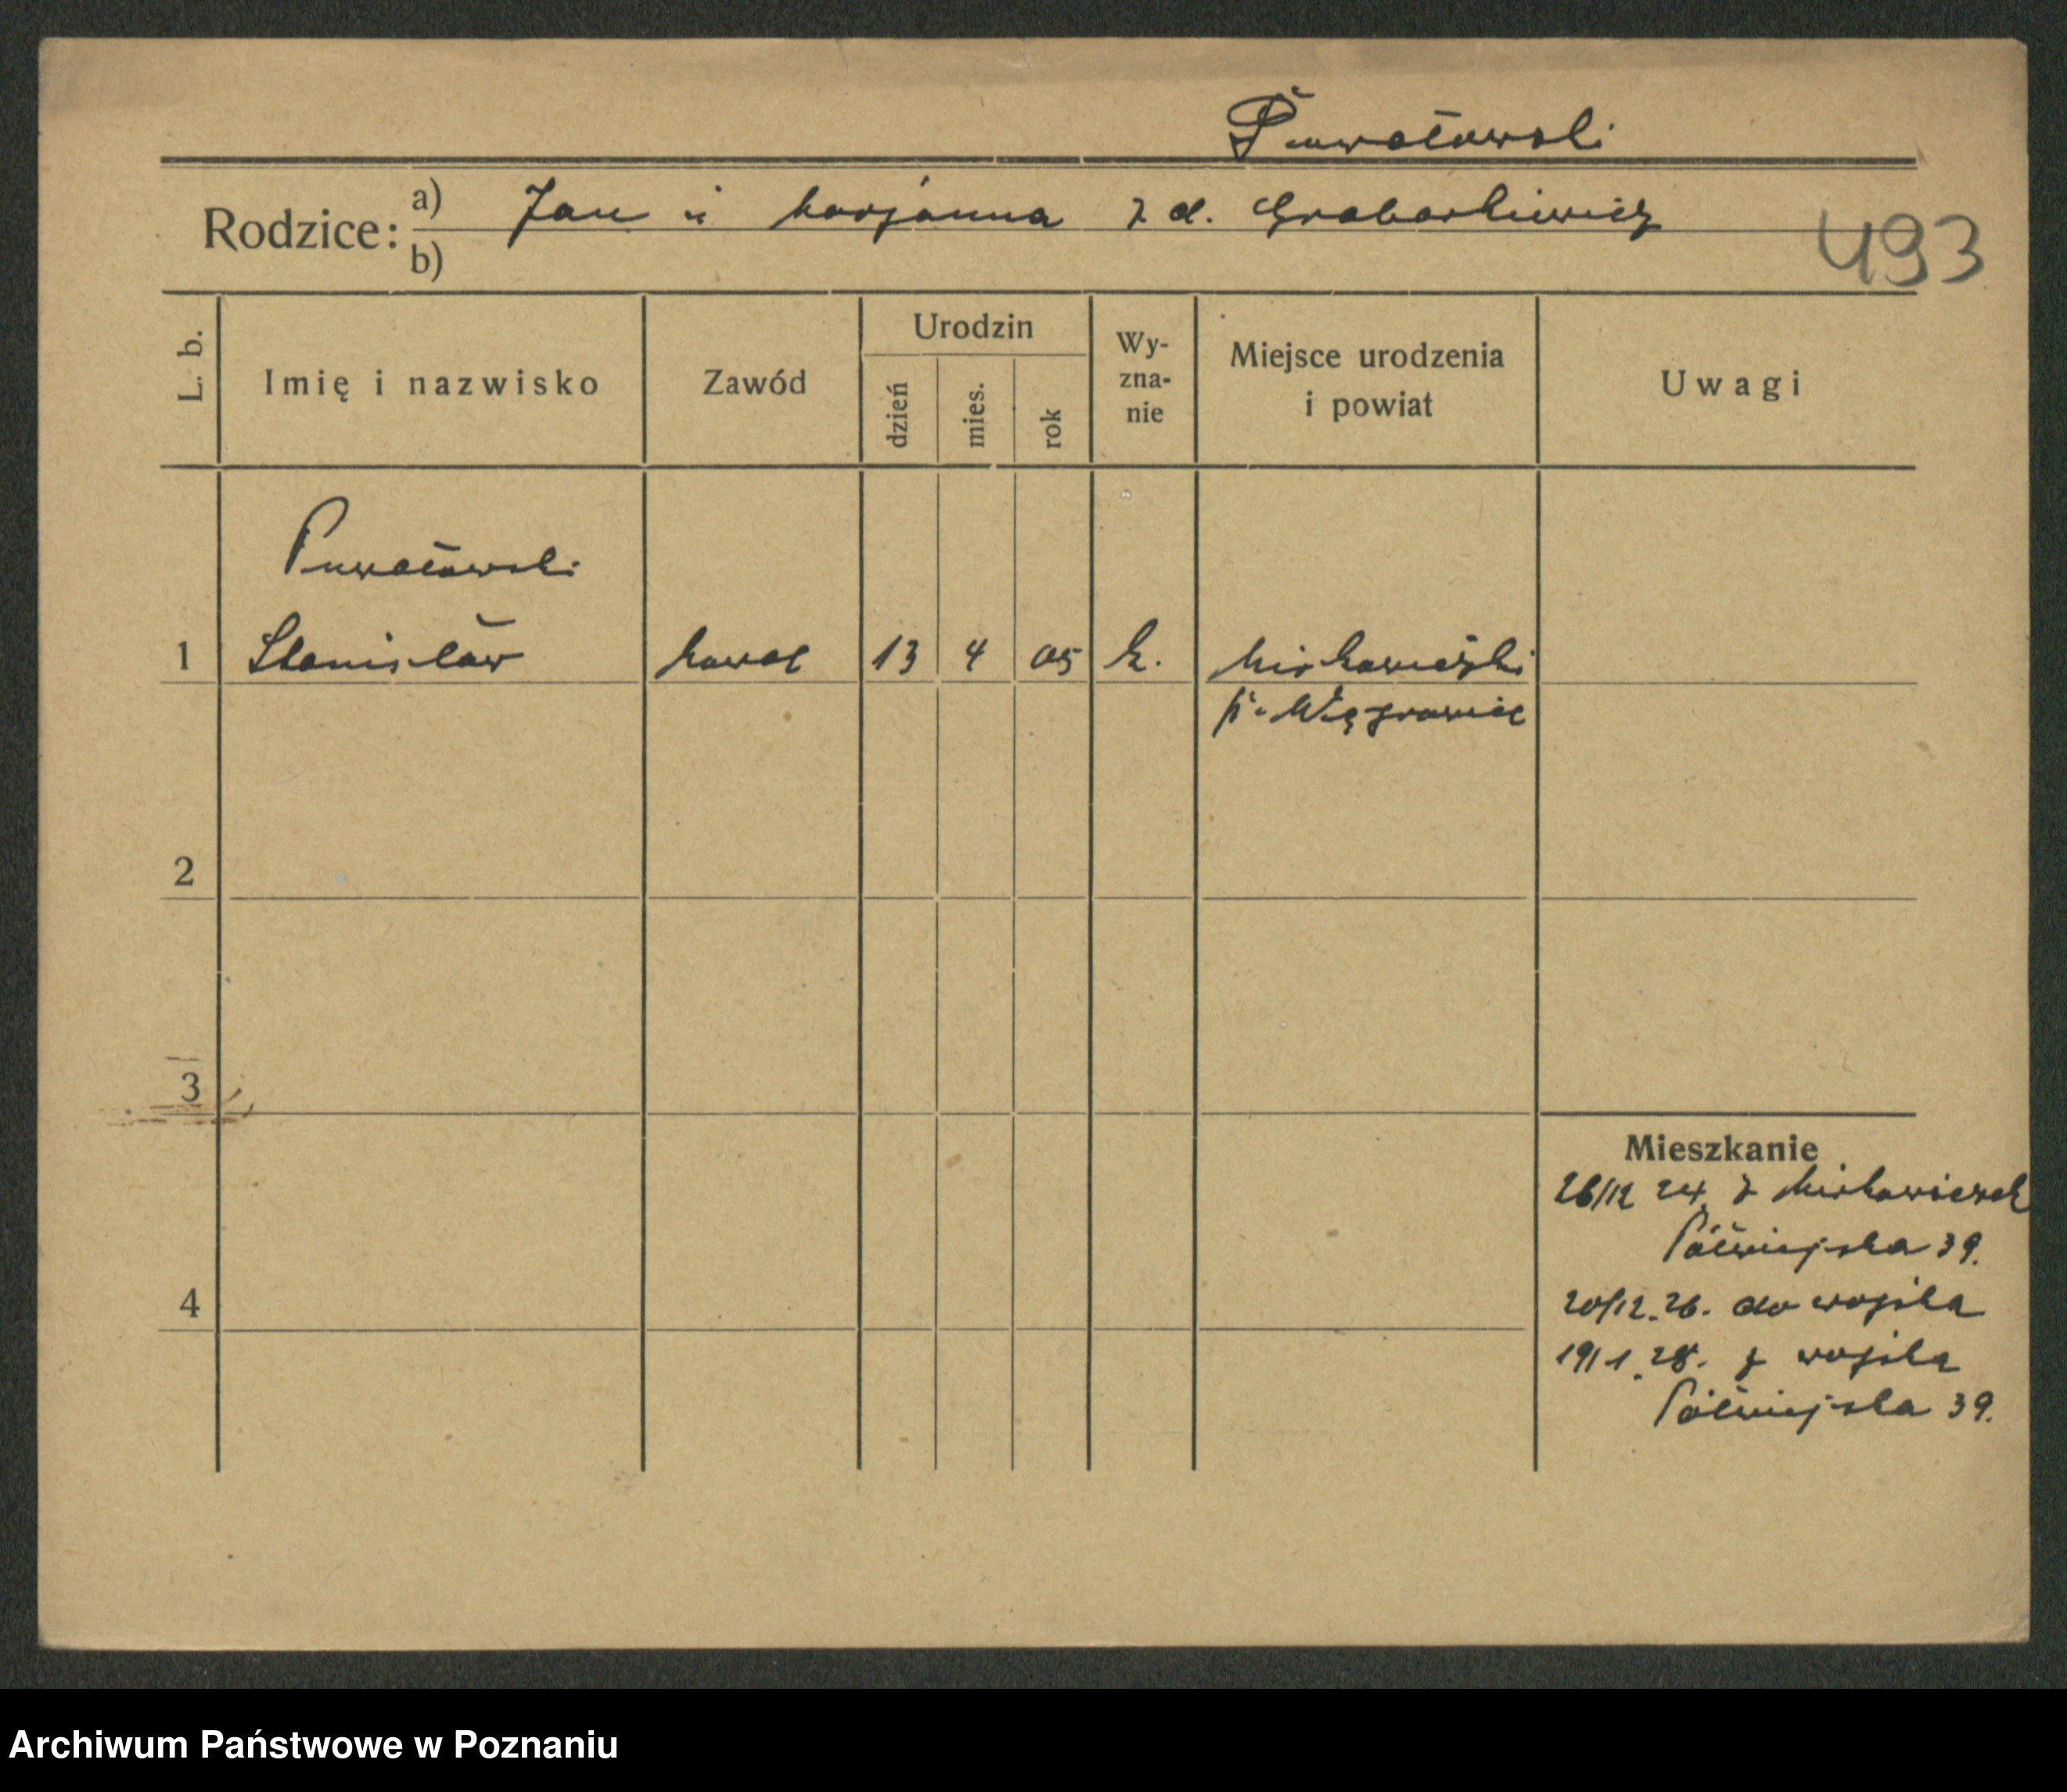 Puwałowski
Rodzice: a) Jan i Marjanna z d. Grabarkiewicz
b)
493
L. b. Imię i nazwisko Zawód Urodzin dzień mies. rok Wy-zna-nie Miejsce urodzenia i powiat Uwagi
Puwałowski
1 Stanisław kowal 13 4 05 k. Mirkowiczki
p. Wągrowiec
2
3
Mieszkanie
26/12 24 z Mirkowiczek
Półwiejska 39.
4
20/12.26. do wojska
19/1.28. z wojska
Półwiejska 39.
Archiwum Państwowe w Poznaniu